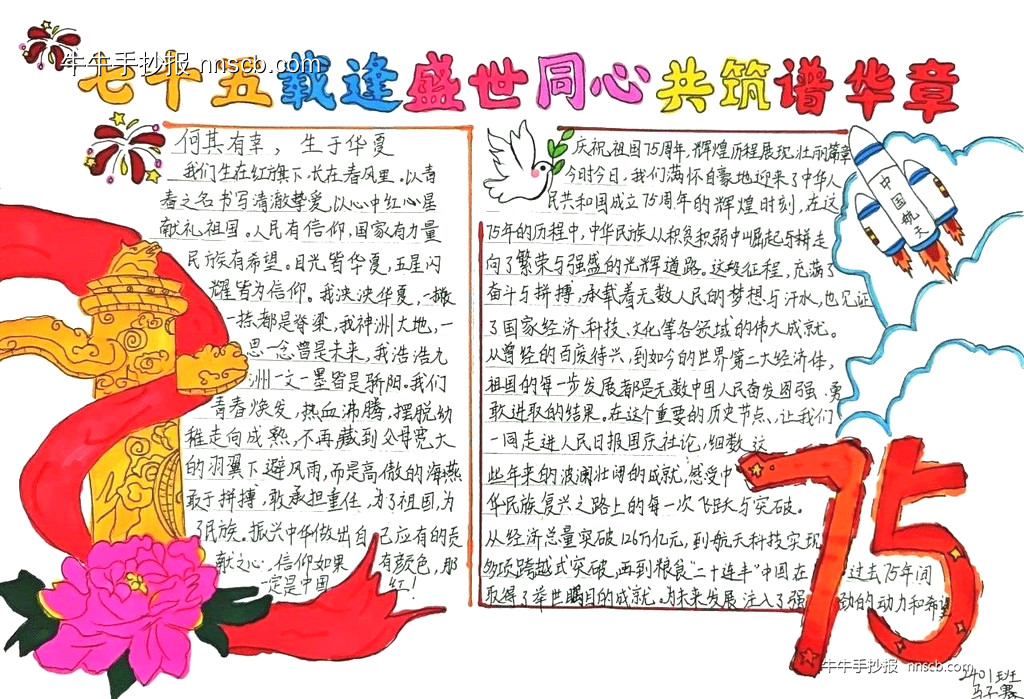 牛牛手抄报 nnscb.com
七十五载逢盛世同心共筑谱华章
何其有幸，生于华夏
我们生在红旗下，长在春风里。以青
春之名书写清澈挚爱，以心中红心星
献礼祖国。人民有信仰，国家有力量
民族有希望。目光皆华夏，五星闪
耀皆为信仰。我泱泱华夏，一撇
一捺都是脊梁，我神州大地，一
思一念曾是未来，我浩浩九
洲一文一墨皆是骄阳。我们
青春焕发，热血沸腾，摆脱幼
稚走向成熟，不再藏到父母宽大
的羽翼下避风雨，而是高傲的海燕
敢于拼搏，敢承担重任，为了祖国，为
了民族。振兴中华做出自己应有的贡
献之心，信仰如果有颜色，那
一定是中国红！
庆祝祖国75周年，辉煌历程展现壮丽篇章
今时今日，我们满怀自豪地迎来了中华人
民共和国成立75周年的辉煌时刻，在这
75年的历程中，中华民族从积贫积弱中崛起与拼走
向了繁荣与强盛的光辉道路。这段征程，充满了
奋斗与拼搏，承载着无数人民的梦想与汗水，也见证
了国家经济、科技、文化等各领域的伟大成就。
从曾经的百废待兴，到如今的世界第二大经济体，
祖国的每一步发展都是无数中国人民奋发图强、勇
敢进取的结果。在这个重要的历史节点，让我们
一同走进人民日报国庆社论，细数这
些年来的波澜壮阔的成就，感受中
华民族复兴之路上的每一次飞跃与突破。
从经济总量突破126万亿元，到航天科技实现
多项跨越式突破，再到粮食"二十连丰"中国在过去75年间
取得了举世瞩目的成就，为未来发展注入了强劲的动力和希望
中国航天
75
牛牛手抄报 nnscb.com
2401班